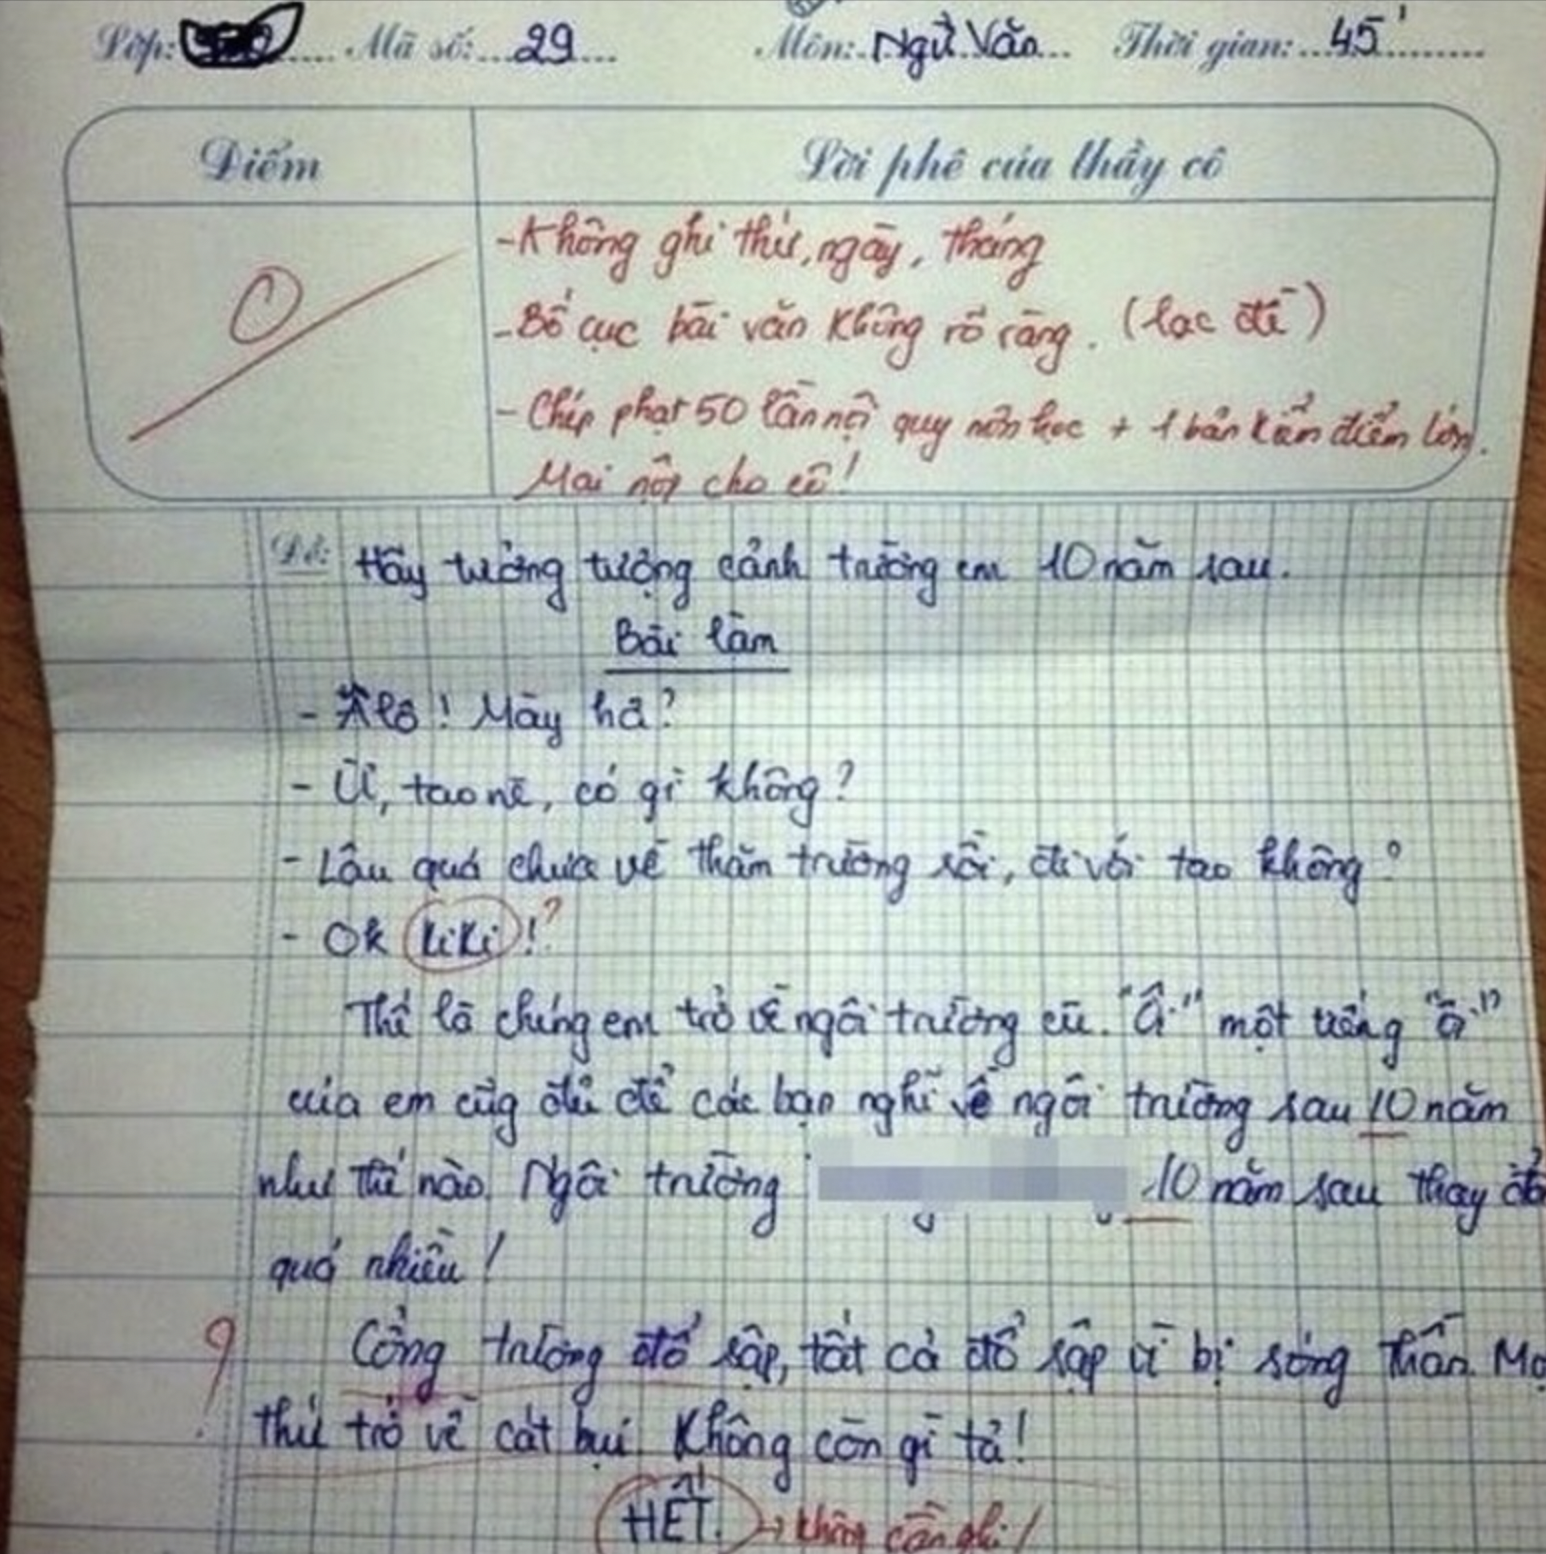 Lớp: Mã số: 29 Môn: Ngữ Văn Thời gian: 45'
Điểm Lời phê của thầy cô
0
- Không ghi thứ, ngày, tháng
- Bố cục bài văn không rõ ràng. (lạc đề)
- Chép phạt 50 lần nội quy môn học + 1 bản kiểm điểm lớn.
Mai nộp cho cô!
Đề: Hãy tưởng tượng cảnh trường em 10 năm sau.
Bài làm
- Alô! Mày hả?
- Ừ, tao nè, có gì không?
- Lâu quá chưa về thăm trường rồi, đi với tao không?
- Ok kiki!?
Thế là chúng em trở về ngôi trường cũ. "Ôi" một tiếng "ôi"
của em cũg đủ để các bạn nghĩ về ngôi trường sau 10 năm
như thế nào. Ngôi trường 10 năm sau thay đổi
quá nhiều!
? Cổng trường đổ sập, tất cả đổ sập vì bị sóng thần. Mọ
thứ trở về cát bụi. Không còn gì tả!
HẾT. → không cần ghi!